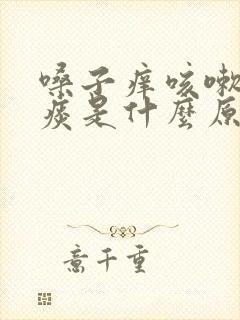 嗓子痒咳嗽
痰是什麼原
意千重